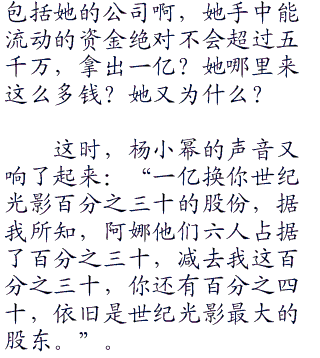 包括她的公司啊，她手中能
流动的资金绝对不会超过五
千万，拿出一亿？她哪里来
这么多钱？她又为什么？
这时，杨小幂的声音又
响了起来：“一亿换你世纪
光影百分之三十的股份，据
我所知，阿娜他们六人占据
了百分之三十，减去我这百
分之三十，你还有百分之四
十，依旧是世纪光影最大的
股东。”。